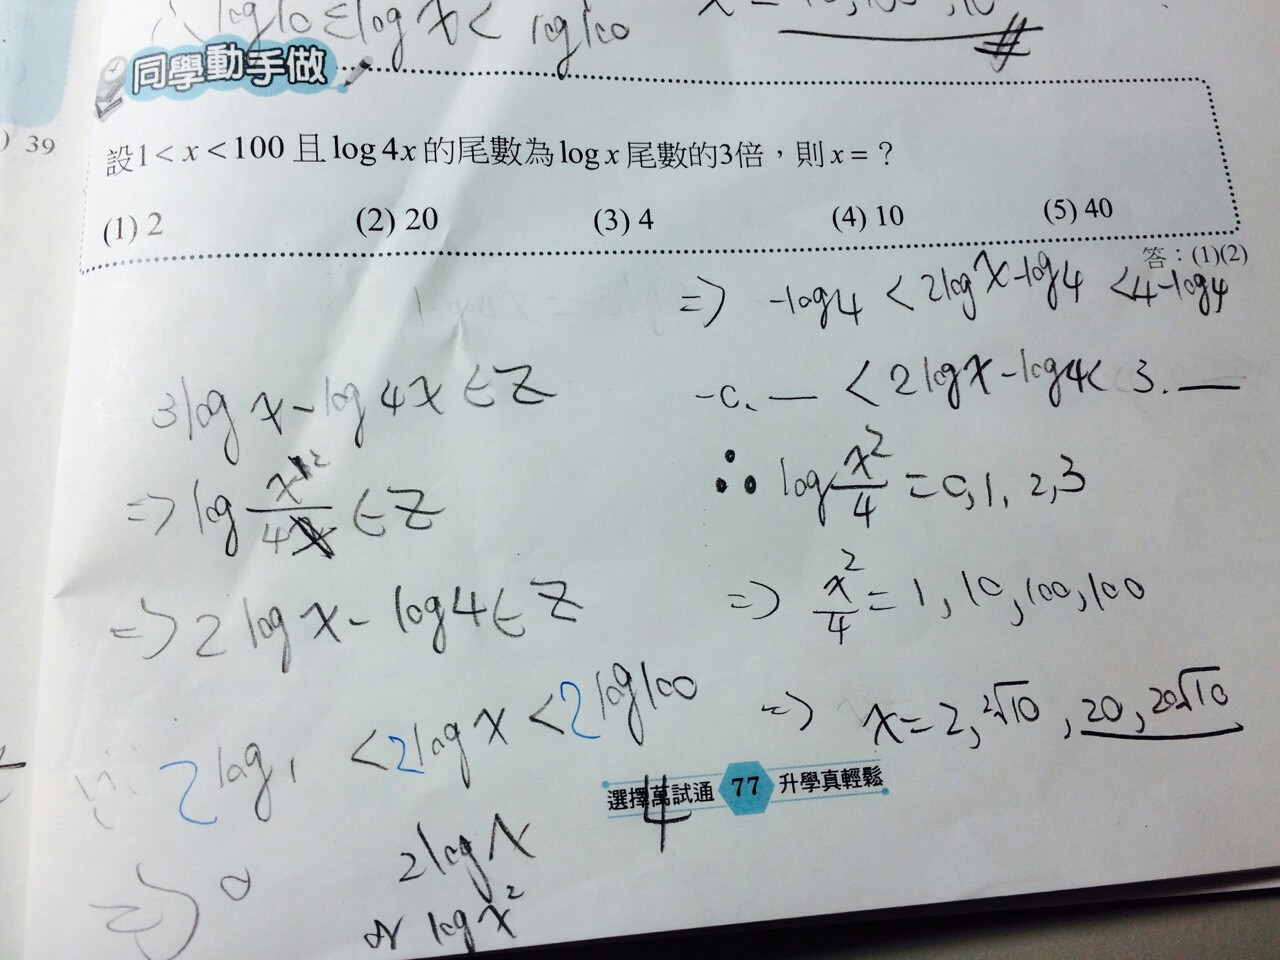 log10 ≤ log x < log100
同學動手做
39
設1 < x < 100 且 log 4x 的尾數為 log x 尾數的3倍，則 x = ？
(1) 2 (2) 20 (3) 4 (4) 10 (5) 40
答：(1)(2)
3log x - log 4x ∈ Z
=> log x²/4 ∈ Z
=> 2 log x - log 4 ∈ Z
2 log 1 < 2 log x < 2 log 100
=> 0
2 log x
4
or log x²
=> -log4 < 2log x - log4 < 4 - log4
-0. — < 2 log x - log4 < 3. —
∴ log x²/4 = 0, 1, 2, 3
=> x²/4 = 1, 10, 100, 100
=> x = 2, 2√10, 20, 20√10
選擇萬試通 77 升學真輕鬆